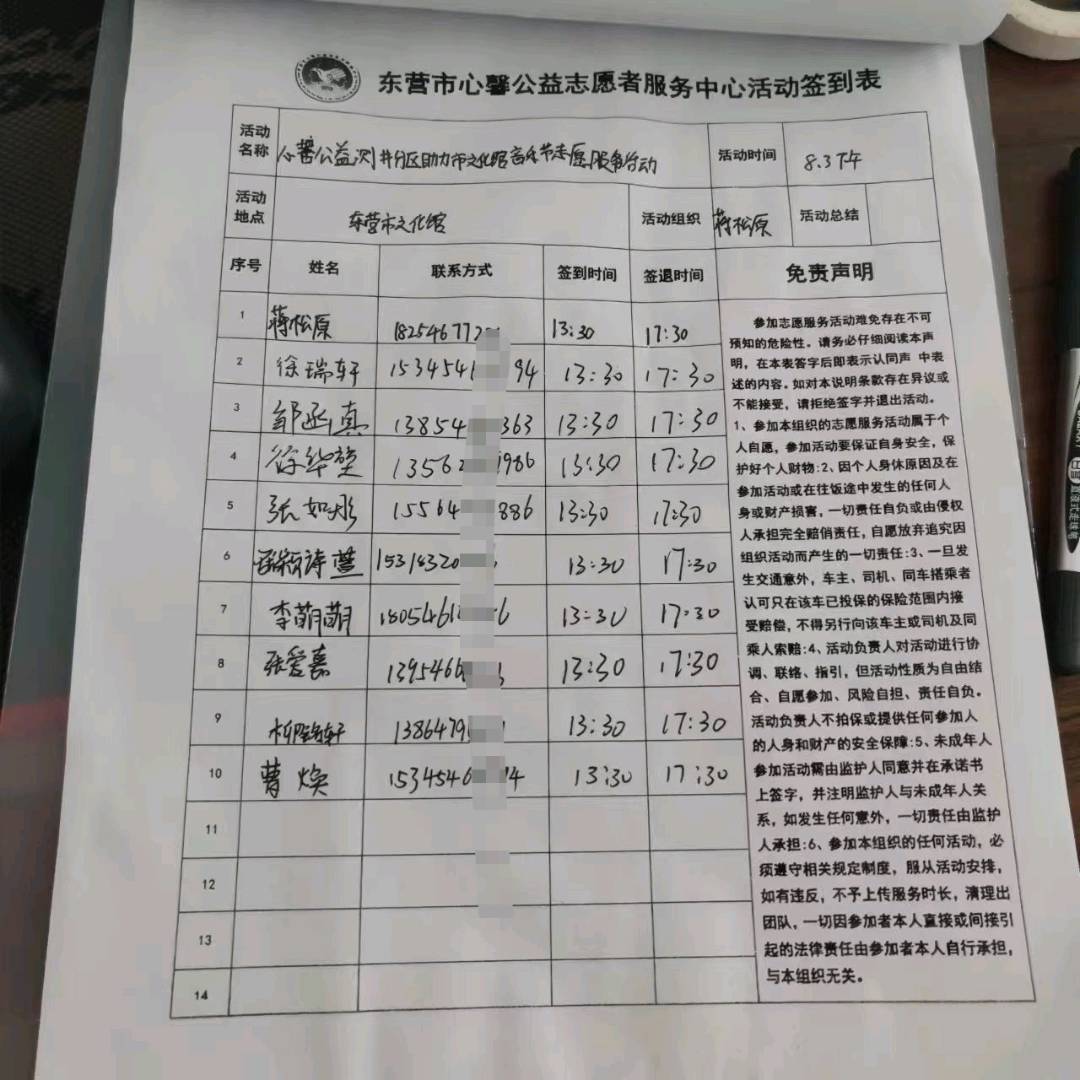 东营市心馨公益志愿者服务中心活动签到表
活动名称 心馨公益河井分区助力市文化馆音乐节志愿服务行动 活动时间 8.3下午
活动地点 东营市文化馆 活动组织 蒋松原 活动总结
序号 姓名 联系方式 签到时间 签退时间 免责声明
1 蒋松原 182546772 13:30 17:30
2 徐瑞轩 1534546 94 13:30 17:30
3 邹函真 13854 363 13:30 17:30
4 徐华堃 1356 1986 13:30 17:30
5 张如彤 15564 886 13:30 17:30
6 诗萱 15314320 13:30 17:30
7 李萌萌 1805461 6 13:30 17:30
8 张爱嘉 1395466 13:30 17:30
9 轩 1386479 13:30 17:30
10 曹焕 1534546 94 13:30 17:30
11
12
13
14
参加志愿服务活动难免存在不可
预知的危险性。请务必仔细阅读本声
明，在本表签字后即表示认同声 中表
述的内容。如对本说明条款存在异议或
不能接受，请拒绝签字并退出活动。
1、参加本组织的志愿服务活动属于个
人自愿，参加活动要保证自身安全，保
护好个人财物:2、因个人身休原因及在
参加活动或在往饭途中发生的任何人
身或财产损害，一切责任自负或由侵权
人承担完全赔俏责任，自愿放弃追究因
组织活动而产生的一切责任:3、一旦发
生交通意外，车主、司机、同车搭乘者
认可只在该车已投保的保险范围内接
受赔偿，不得另行向该车主或司机及同
乘人索赔:4、活动负责人对活动进行协
调、联络、指引，但活动性质为自由结
合、自愿参加、风险自担、责任自负。
活动负责人不拍保或提供任何参加人
的人身和财产的安全保障:5、未成年人
参加活动需由监护人同意并在承诺书
上签字，并注明监护人与未成年人关
系，如发生任何意外，一切责任由监护
人承担:6、参加本组织的任何活动，必
须遵守相关规定制度，服从活动安排，
如有违反，不予上传服务时长，清理出
团队，一切因参加者本人直接或间接引
起的法律责任由参加者本人自行承担，
与本组织无关。